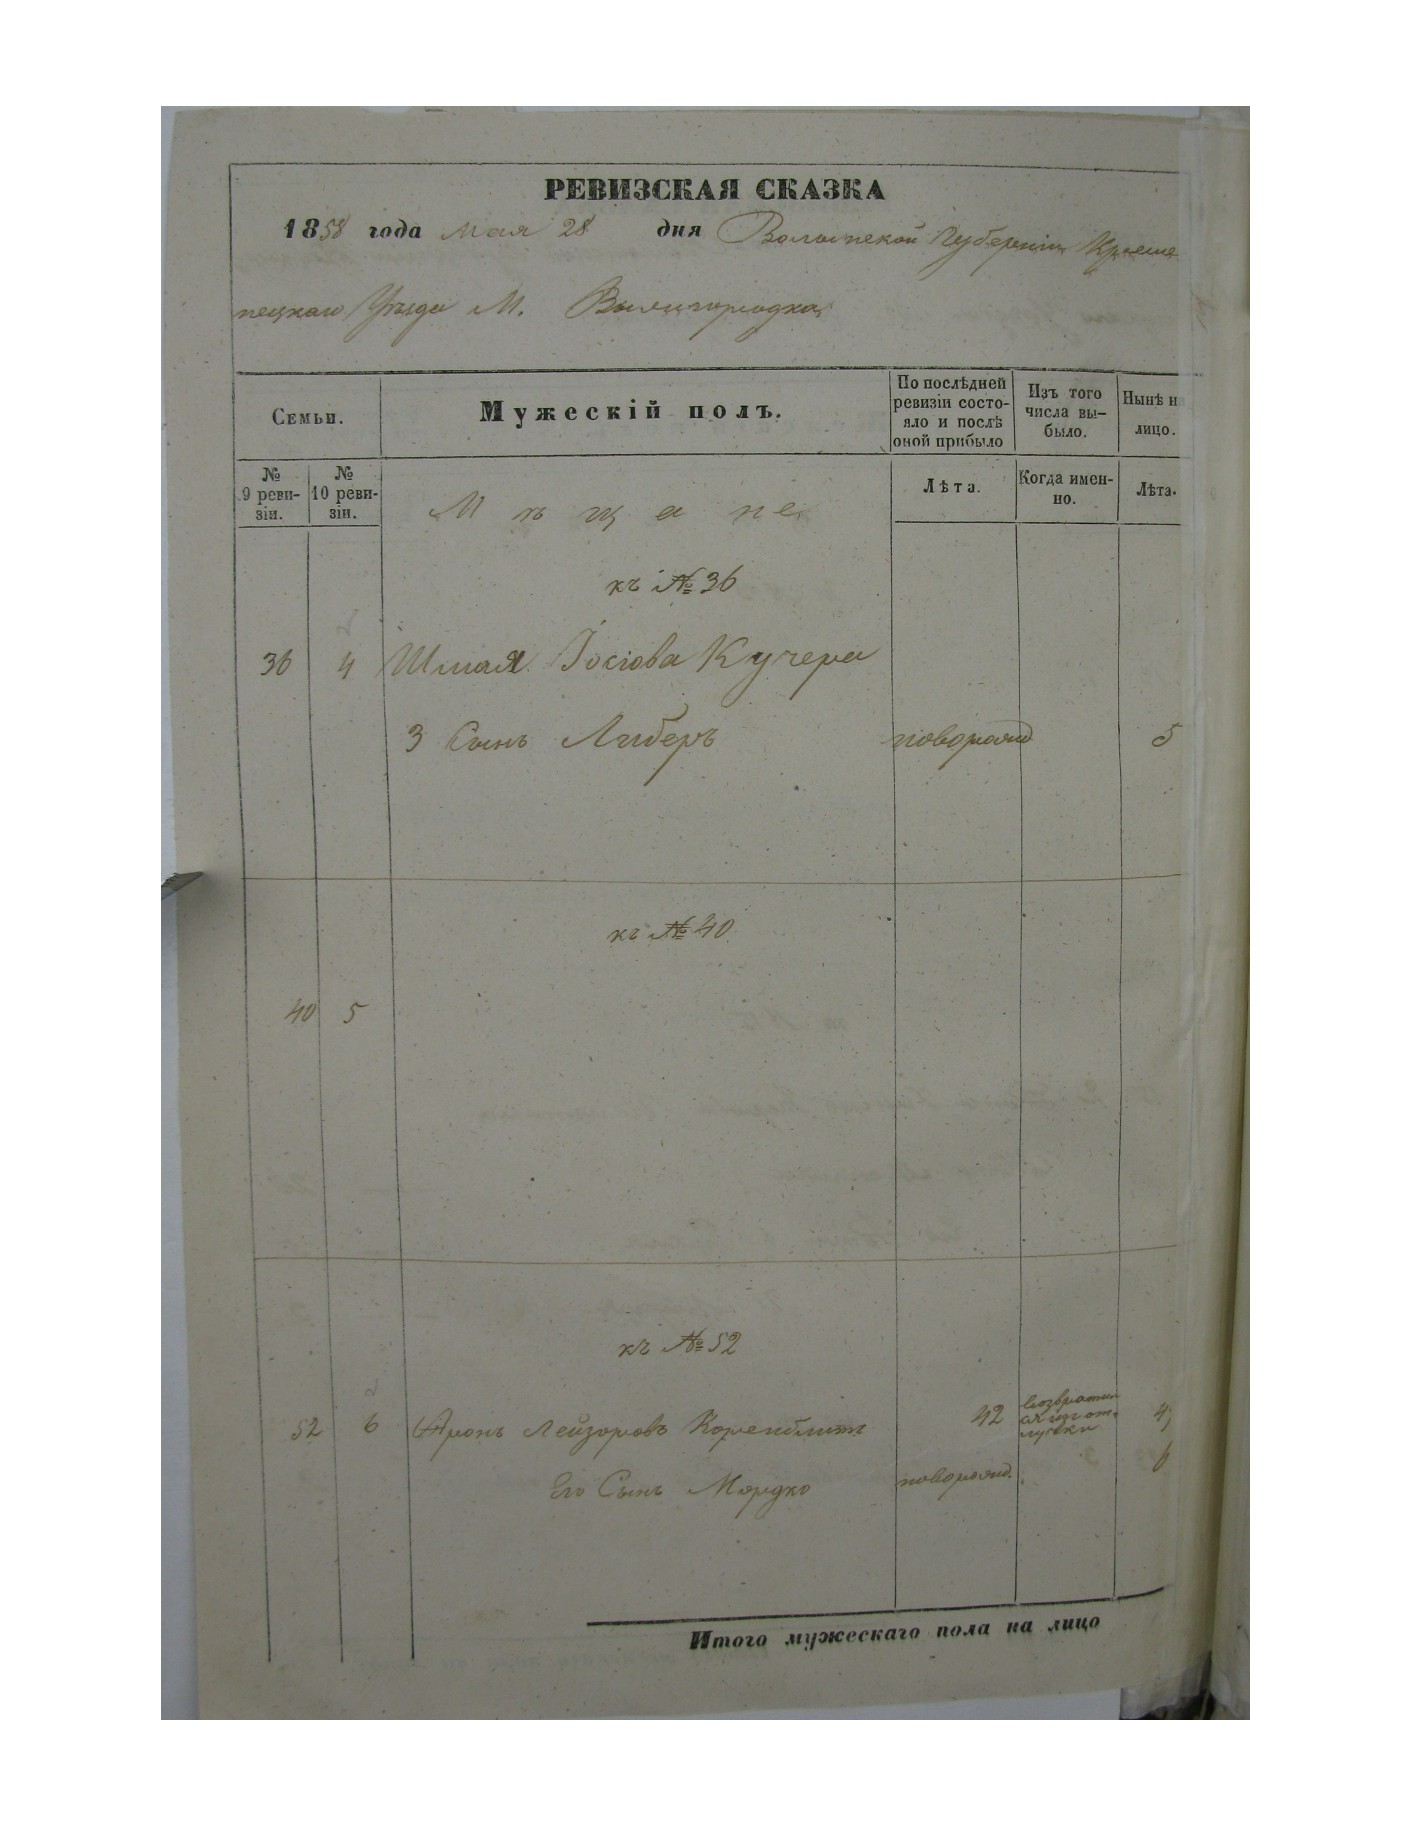 РЕВИЗСКАЯ СКАЗКА
1858 года мая 28 дня Волынской Губерніи Кремe
нецкаго Уѣзда М. Вышгородка
Семьи.
Мужескій полъ.
По послѣдней ревизіи состо-
яло и послѣ
оной прибыло
Изъ того
числа вы-
было.
Нынѣ на
лицо.
№
9 реви-
зіи.
№
10 реви-
зіи.
Лѣта.
Когда имен-
но.
Лѣта.
Мѣщане
къ № 36
36 4 Шмая Іосіова Кучера
3 Сынъ Либеръ новорожд 5
къ № 40
40 5
къ № 52
52 6 Аронъ Лейзоровъ Коренблитъ 42 возвратил
ся изъ от-
лучки
Его Сынъ Мордко новорожд. 6
Итого мужескаго пола на лицо